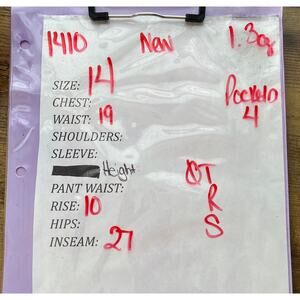 1410 New 1.30
SIZE: 14
CHEST:
WAIST: 19
SHOULDERS:
SLEEVE:
Height
PANT WAIST:
RISE: 10
HIPS:
INSEAM: 27
Pockets
4
OT
R
S